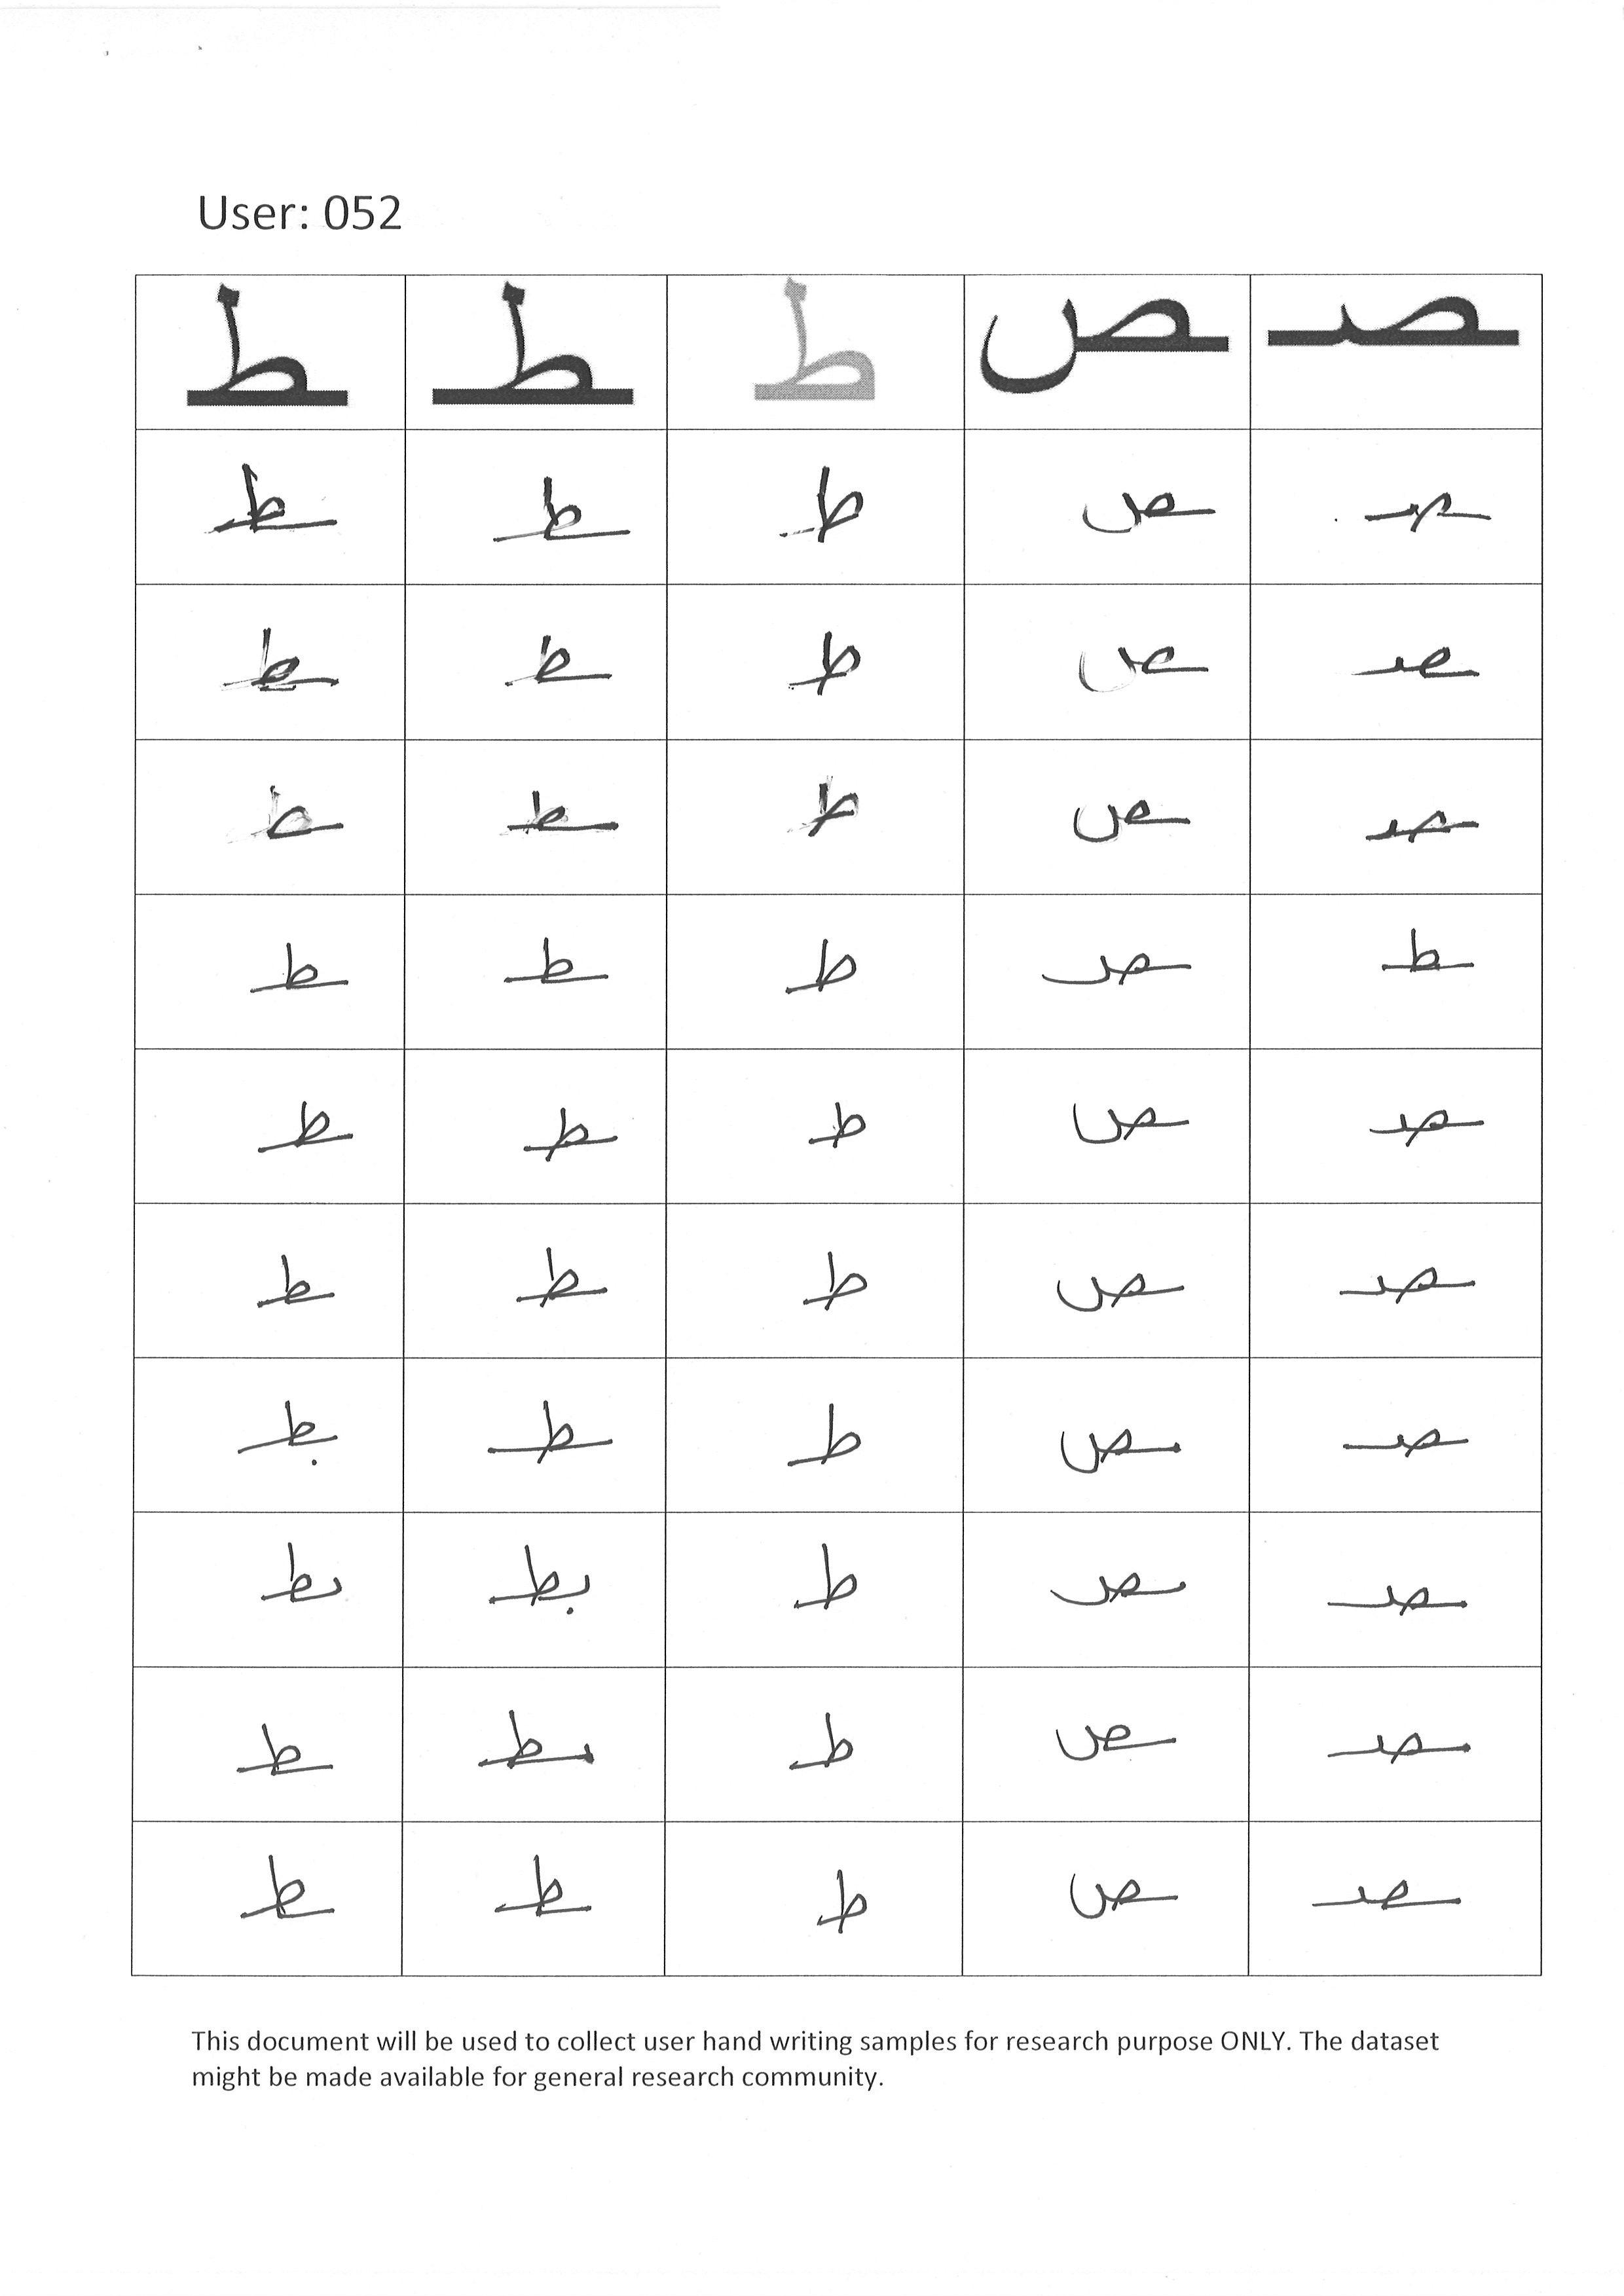 User: 052
ـصـ ـص ط ـطـ ـط
ـصـ ـص ط ـطـ ـط
ـصـ ـص ط ـطـ ـط
ـصـ ـص ط ـطـ ـط
ـطـ ـص ط ـطـ ـط
ـصـ ـص ط ـطـ ـط
ـصـ ـص ط ـطـ ـط
ـصـ ـص ط ـطـ بط
ـصـ ـص ط بط ـط
ـصـ ـص ط ـطـ ـط
ـصـ ـص ط ـطـ ـط
This document will be used to collect user hand writing samples for research purpose ONLY. The dataset
might be made available for general research community.